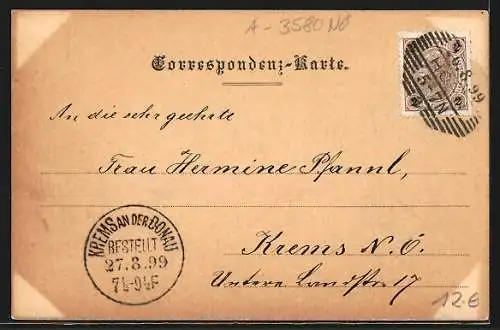 A - 3580 NÖ
Correspondenz-Karte.
2 2
6.8.99
2 2
An die sehr geehrte
Frau Hermine Pfannl,
KREMS AN DER DONAU
BESTELLT
27.8.99
Krems N. Ö.
Untere Landstr. 17
12.€